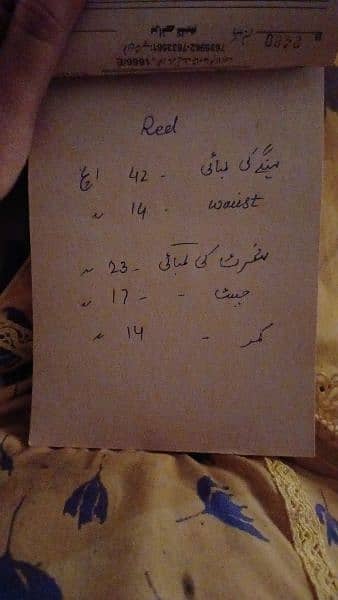 Red
لہنگے کی لمبائی - 42 انچ
waist - 14 "
شرٹ کی لمبائی - 23 "
چیسٹ - - 17 "
کمر - 14 "